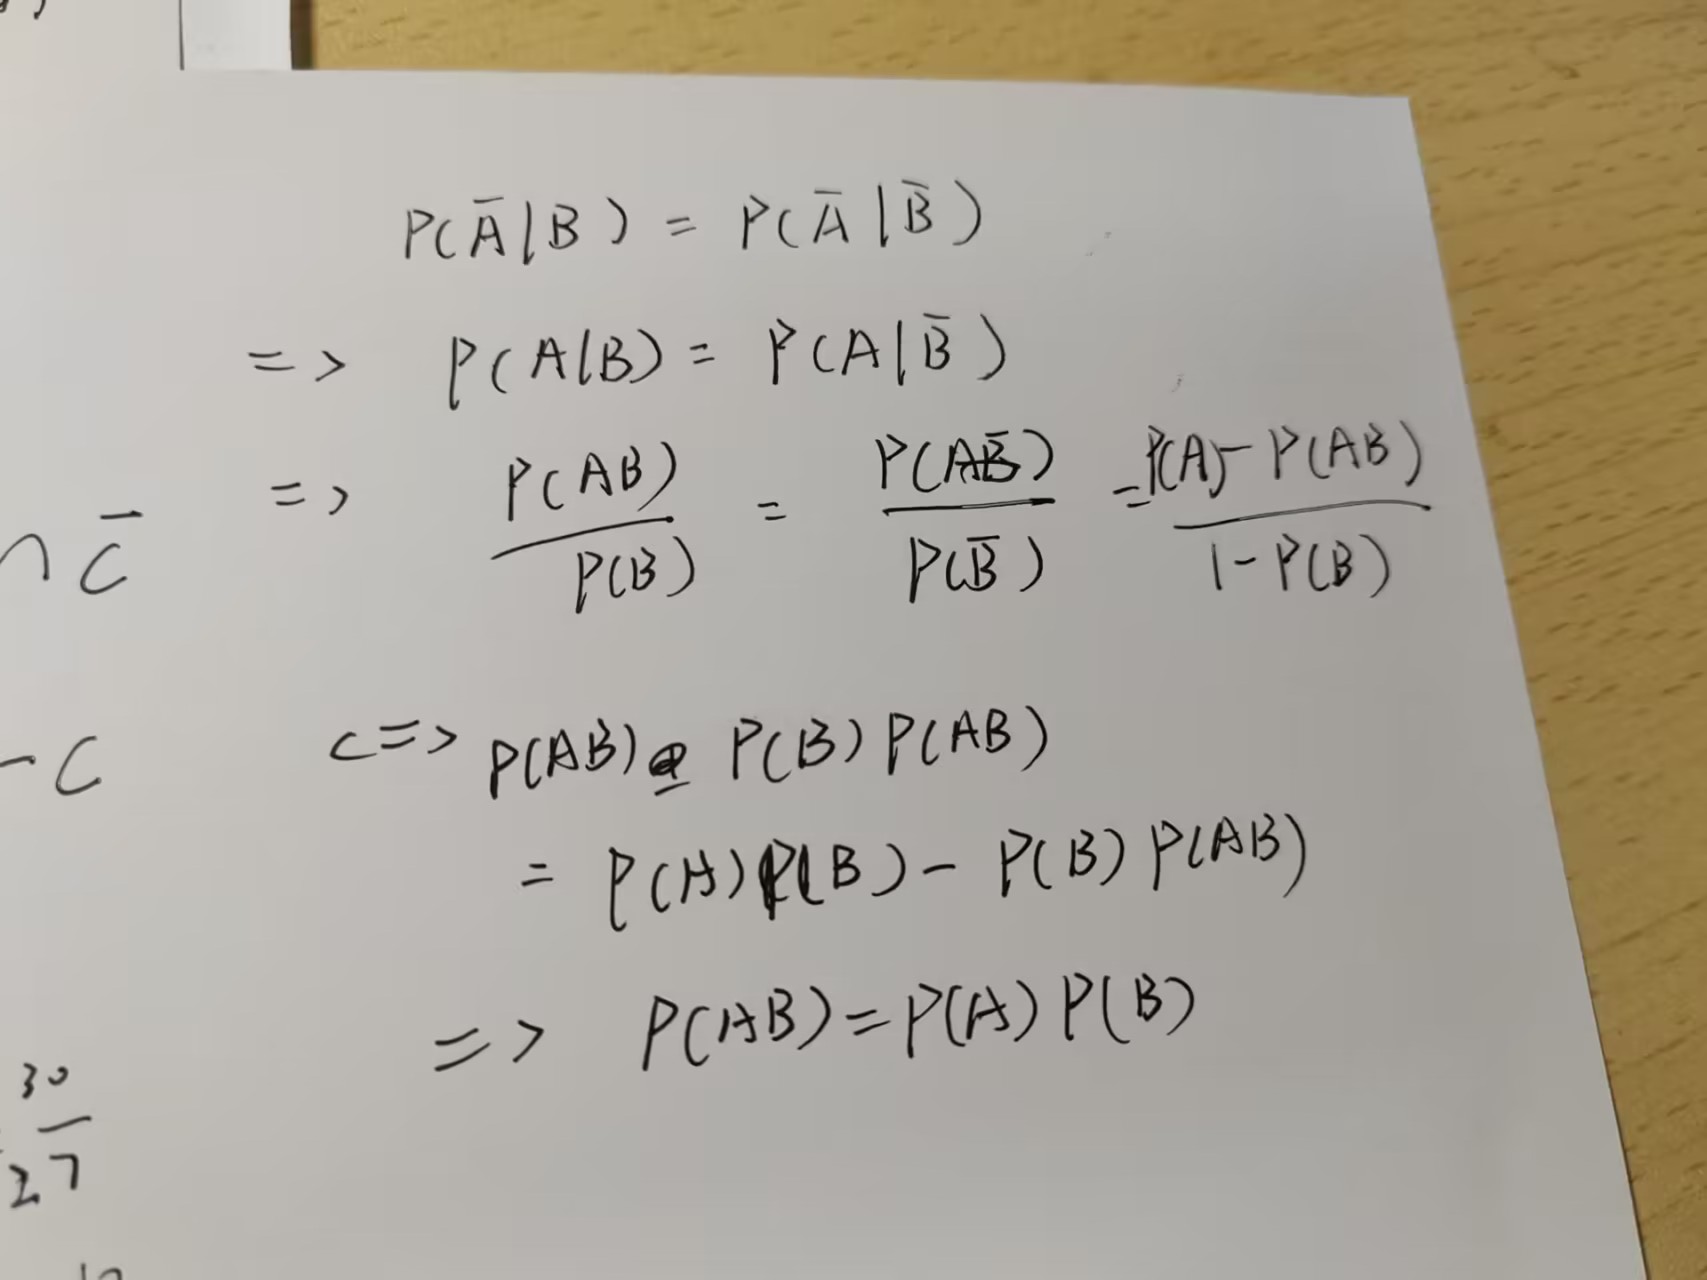 P(Ā|B) = P(Ā|B̄)
=> P(A|B) = P(A|B̄)
=> P(AB)/P(B) = P(AB̄)/P(B̄) = P(A)-P(AB)/1-P(B)
∩ C̄
<=> P(AB) - P(B)P(AB)
- C
= P(A)P(B) - P(B)P(AB)
=> P(AB) = P(A)P(B)
30
27